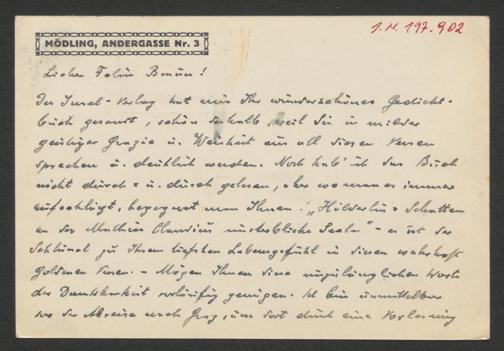 J.N. 197.902
MÖDLING, ANDERGASSE Nr. 3
Lieber Felix Braun!
Der Insel-Verlag hat mir Ihr wunderschönes Gedicht-
buch gesandt, schön deshalb, weil Sie in milder
geistiger Grazie u. Weisheit aus all diesen Versen
sprechen u. deutlich werden. Noch hab' ich das Buch
nicht durch- u. durch gelesen, aber wo man es immer
aufschlägt, begegnet man Ihnen! „Hölderlins Schatten
an des Mathias Claudius unsterbliche Seele" - es ist der
Schlüssel zu Ihrem tiefsten Lebensgefühl in diesen wahrhaft
goldenen Versen. - Mögen Ihnen diese unzulänglichen Worte
der Dankbarkeit vorläufig genügen. Ich bin unmittelbar
vor der Abreise nach Graz, um dort durch eine Vorlesung